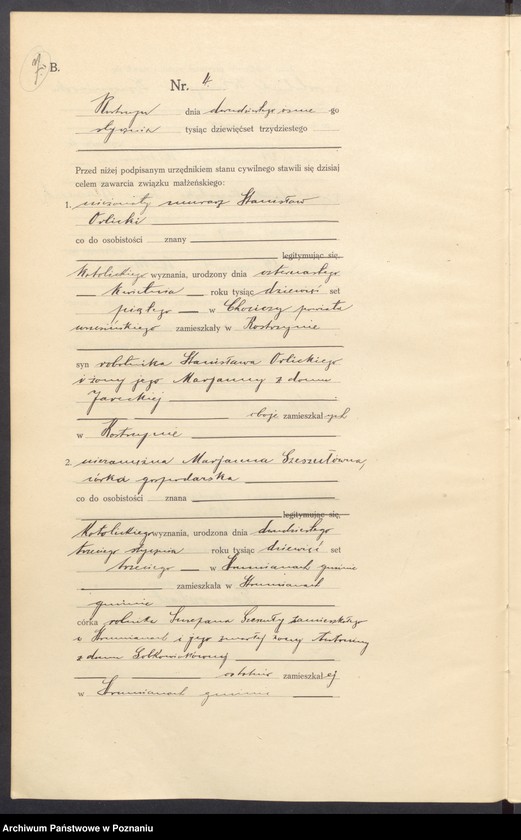 B.
Nr. 4.
Kostrzyn dnia dwudziestego ósme -go
stycznia tysiąc dziewięćset trzydziestego
Przed niżej podpisanym urzędnikiem stanu cywilnego stawili się dzisiaj
celem zawarcia związku małżeńskiego:
1. nieżonaty murarz Stanisław
Orlicki
co do osobistości znany
legitymując się,
Katolickiego wyznania, urodzony dnia czternastego
kwietnia roku tysiąc dziewięć set
piątego w Chociczy powiatu
wrzesińskiego zamieszkały w Kostrzynie
syn robotnika Stanisława Orlickiego
i żony jego Marjanny z domu
Jareckiej
oboje zamieszkał ych
w Kostrzynie
2. niezamężna Marjanna Szeszułówna,
córka gospodarska
co do osobistości znana
legitymując się,
Katolickiego wyznania, urodzona dnia dwudziestego
trzeciego stycznia roku tysiąc dziewięć set
trzeciego w gminie
zamieszkała w
gminie
córka rolnika Szeszuły zamieszkałego
w i jego zmarłej żony Antoniny
z domu
ostatnio zamieszkał ej
w gminie
Archiwum Państwowe w Poznaniu